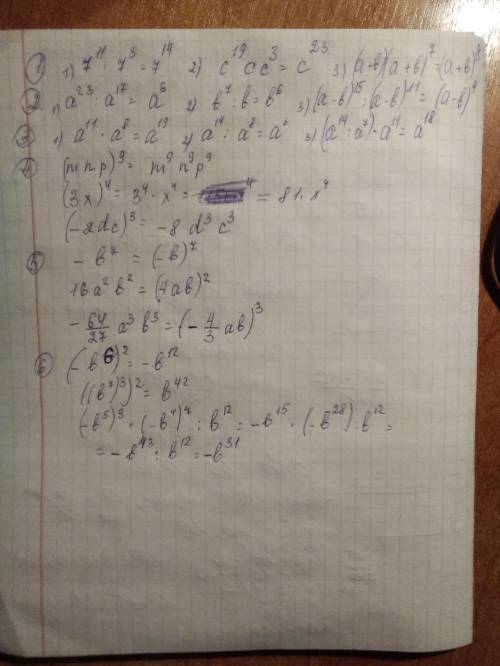 ① 1) 7¹¹ · 7³ = 7¹⁴ 2) c¹⁹ c c³ = c²³ 3) (a+b)(a+b)⁷ = (a+b)⁸
② 1) a²³ : a¹⁷ = a⁶ 2) b⁷ : b = b⁶ 3) (a-b)¹⁵ : (a-b)¹¹ = (a-b)⁴
③ 1) a¹¹ · a⁸ = a¹⁹ 2) a¹⁴ : a⁸ = a⁶ 3) (a¹⁴ : a⁷) · a¹¹ = a¹⁸
④ (mnp)⁹ = m⁹ n⁹ p⁹
(3x)⁴ = 3⁴ · x⁴ = = 81 · x⁴
(-2dc)³ = -8 d³ c³
⑤ - b⁷ = (-b)⁷
16a² b² = (4ab)²
- 64/27 a³ b³ = (- 4/3 ab)³
⑥ (-b⁶)² = -b¹²
((b⁷)³)² = b⁴²
(-b⁵)³ · (-b⁴)⁷ : b¹² = -b¹⁵ · (-b²⁸) : b¹² =
= - b⁴³ : b¹² = -b³¹